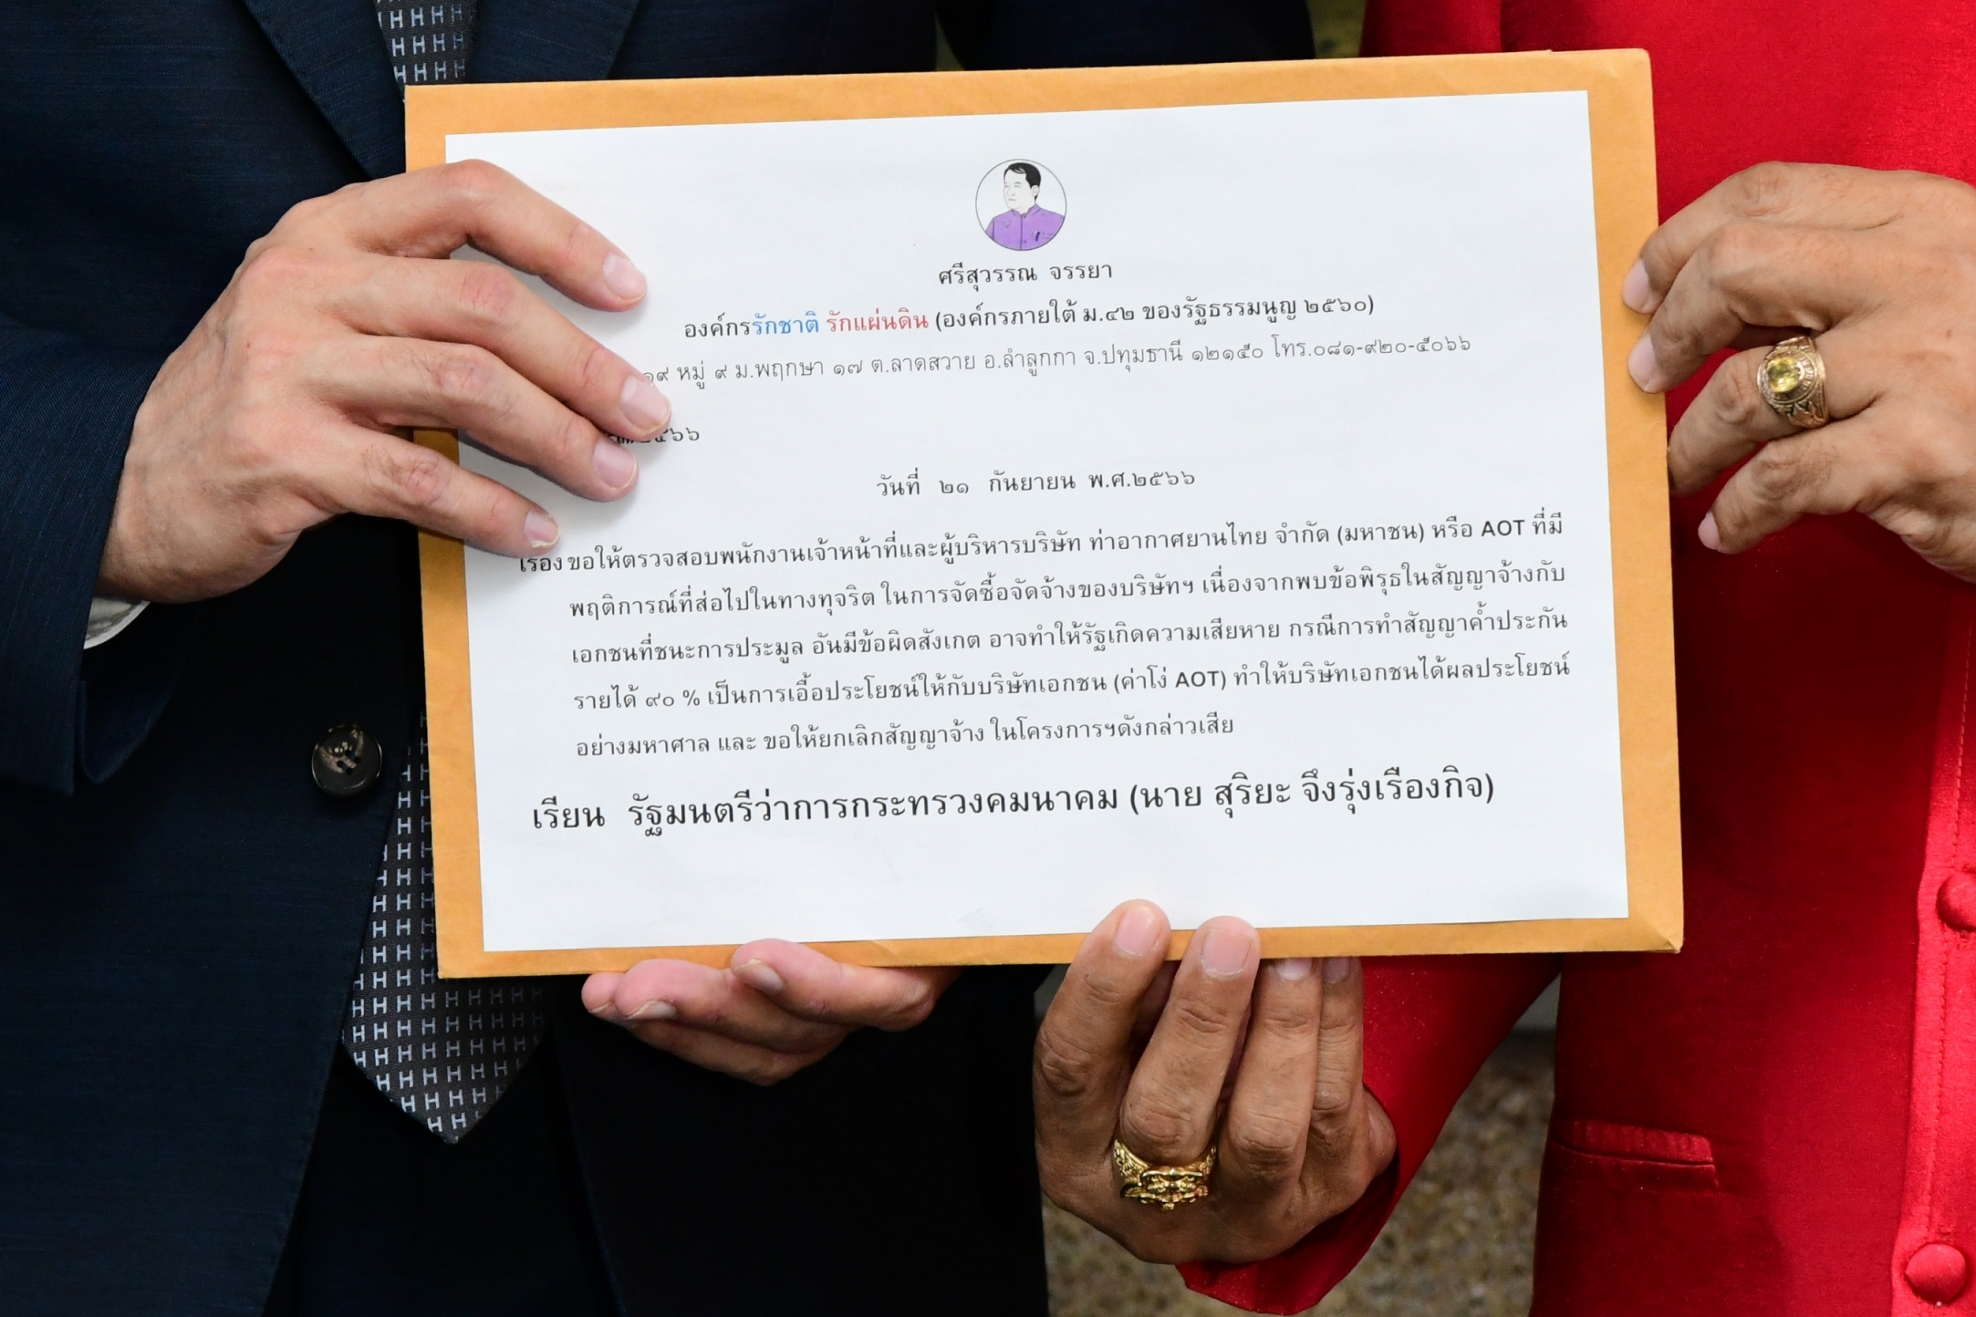 ศรีสุวรรณ จรรยา
องค์กรรักชาติ รักแผ่นดิน (องค์กรภายใต้ ม.๔๒ ของรัฐธรรมนูญ ๒๕๖๐)
๑๙ หมู่ ๙ ม.พฤกษา ๑๗ ต.ลาดสวาย อ.ลำลูกกา จ.ปทุมธานี ๑๒๑๕๐ โทร.๐๘๑-๙๒๐-๕๐๖๖
๒๕๖๖
วันที่ ๒๑ กันยายน พ.ศ.๒๕๖๖
เรื่อง ขอให้ตรวจสอบพนักงานเจ้าหน้าที่และผู้บริหารบริษัท ท่าอากาศยานไทย จำกัด (มหาชน) หรือ AOT ที่มี
พฤติการณ์ที่ส่อไปในทางทุจริต ในการจัดซื้อจัดจ้างของบริษัทฯ เนื่องจากพบข้อพิรุธในสัญญาจ้างกับ
เอกชนที่ชนะการประมูล อันมีข้อผิดสังเกต อาจทำให้รัฐเกิดความเสียหาย กรณีการทำสัญญาค้ำประกัน
รายได้ ๙๐ % เป็นการเอื้อประโยชน์ให้กับบริษัทเอกชน (ค่าโง่ AOT) ทำให้บริษัทเอกชนได้ผลประโยชน์
อย่างมหาศาล และ ขอให้ยกเลิกสัญญาจ้าง ในโครงการฯดังกล่าวเสีย
เรียน รัฐมนตรีว่าการกระทรวงคมนาคม (นาย สุริยะ จึงรุ่งเรืองกิจ)